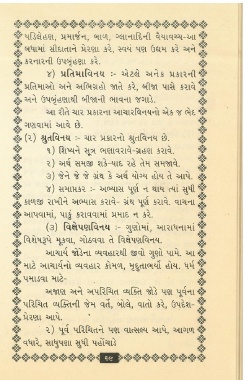 પડિલેહણ, પ્રમાર્જન, બાળ, ગ્લાનાદિની વૈયાવચ્ચ-આ
બધામાં સીદાતાને પ્રેરણા કરે, સ્વયં પણ ઉદ્યમ કરે અને
કરનારની ઉપબૃંહણા કરે.
૪) પ્રતિમાવિનય :- એટલે અનેક પ્રકારની
પ્રતિમાઓ અને અભિગ્રહો જાતે કરે, બીજા પાસે કરાવે
અને ઉપબૃંહણાથી બીજાની ભાવના જગાડે.
આ રીતે ચાર પ્રકારના આચારવિનયનો એક જ ભેદ
ગણવામાં આવે છે.
(૨) શ્રુતવિનય :- ચાર પ્રકારનો શ્રુતવિનય છે.
૧) શિષ્યને સુત્ર ભણાવરાવે-ગ્રહણ કરાવે.
૨) અર્થ સમજી શકે-યાદ રહે તેમ સમજાવે.
૩) જેને જે જે ગ્રંથ કે અર્થ યોગ્ય હોય તે આપે.
૪) સમાપ્રકર :- અભ્યાસ પૂર્ણ ન થાય ત્યાં સુધી
કાળજી રાખીને અભ્યાસ કરાવે- ગ્રંથ પૂર્ણ કરાવે. વાચના
આપવામાં, પાઠું કરાવવામાં પ્રમાદ ન કરે.
(૩) વિક્ષેપણવિનય :- ગુણોમાં, આરાધનામાં
વિશેષરૂપે મૂકવા, ગોઠવવા તે વિક્ષેપણવિનય.
આચાર્ય જોડેના વ્યવહારથી જીવો ગુણો પામે. આ
માટે આચાર્યનો વ્યવહાર કોમળ, મૃદુતાભર્યો હોય. ધર્મ
પમાડવા માટે-
અજાણ અને અપરિચિત વ્યક્તિ જોડે પણ પૂર્વના
પરિચિત વ્યક્તિની જેમ વર્તે, બોલે, વાતો કરે, ઉપદેશ-
પ્રેરણા આપે.
૨) પૂર્વ પરિચિતને પણ વાત્સલ્ય આપે, આગળ
વધારે, સાધુપણા સુધી પહોંચાડે